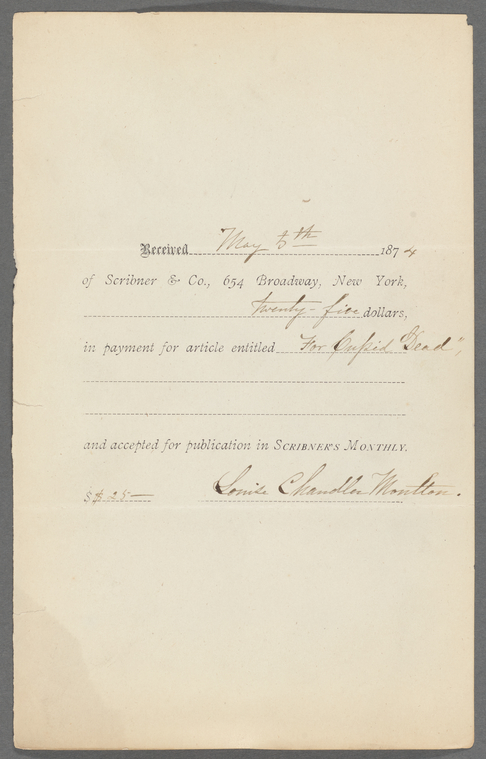 Received May 5th 1874
of Scribner & Co., 654 Broadway, New York,
twenty-five dollars,
in payment for article entitled "For Cupid Dead",
and accepted for publication in SCRIBNER'S MONTHLY.
$ $.25— Louise Chandler Moulton.